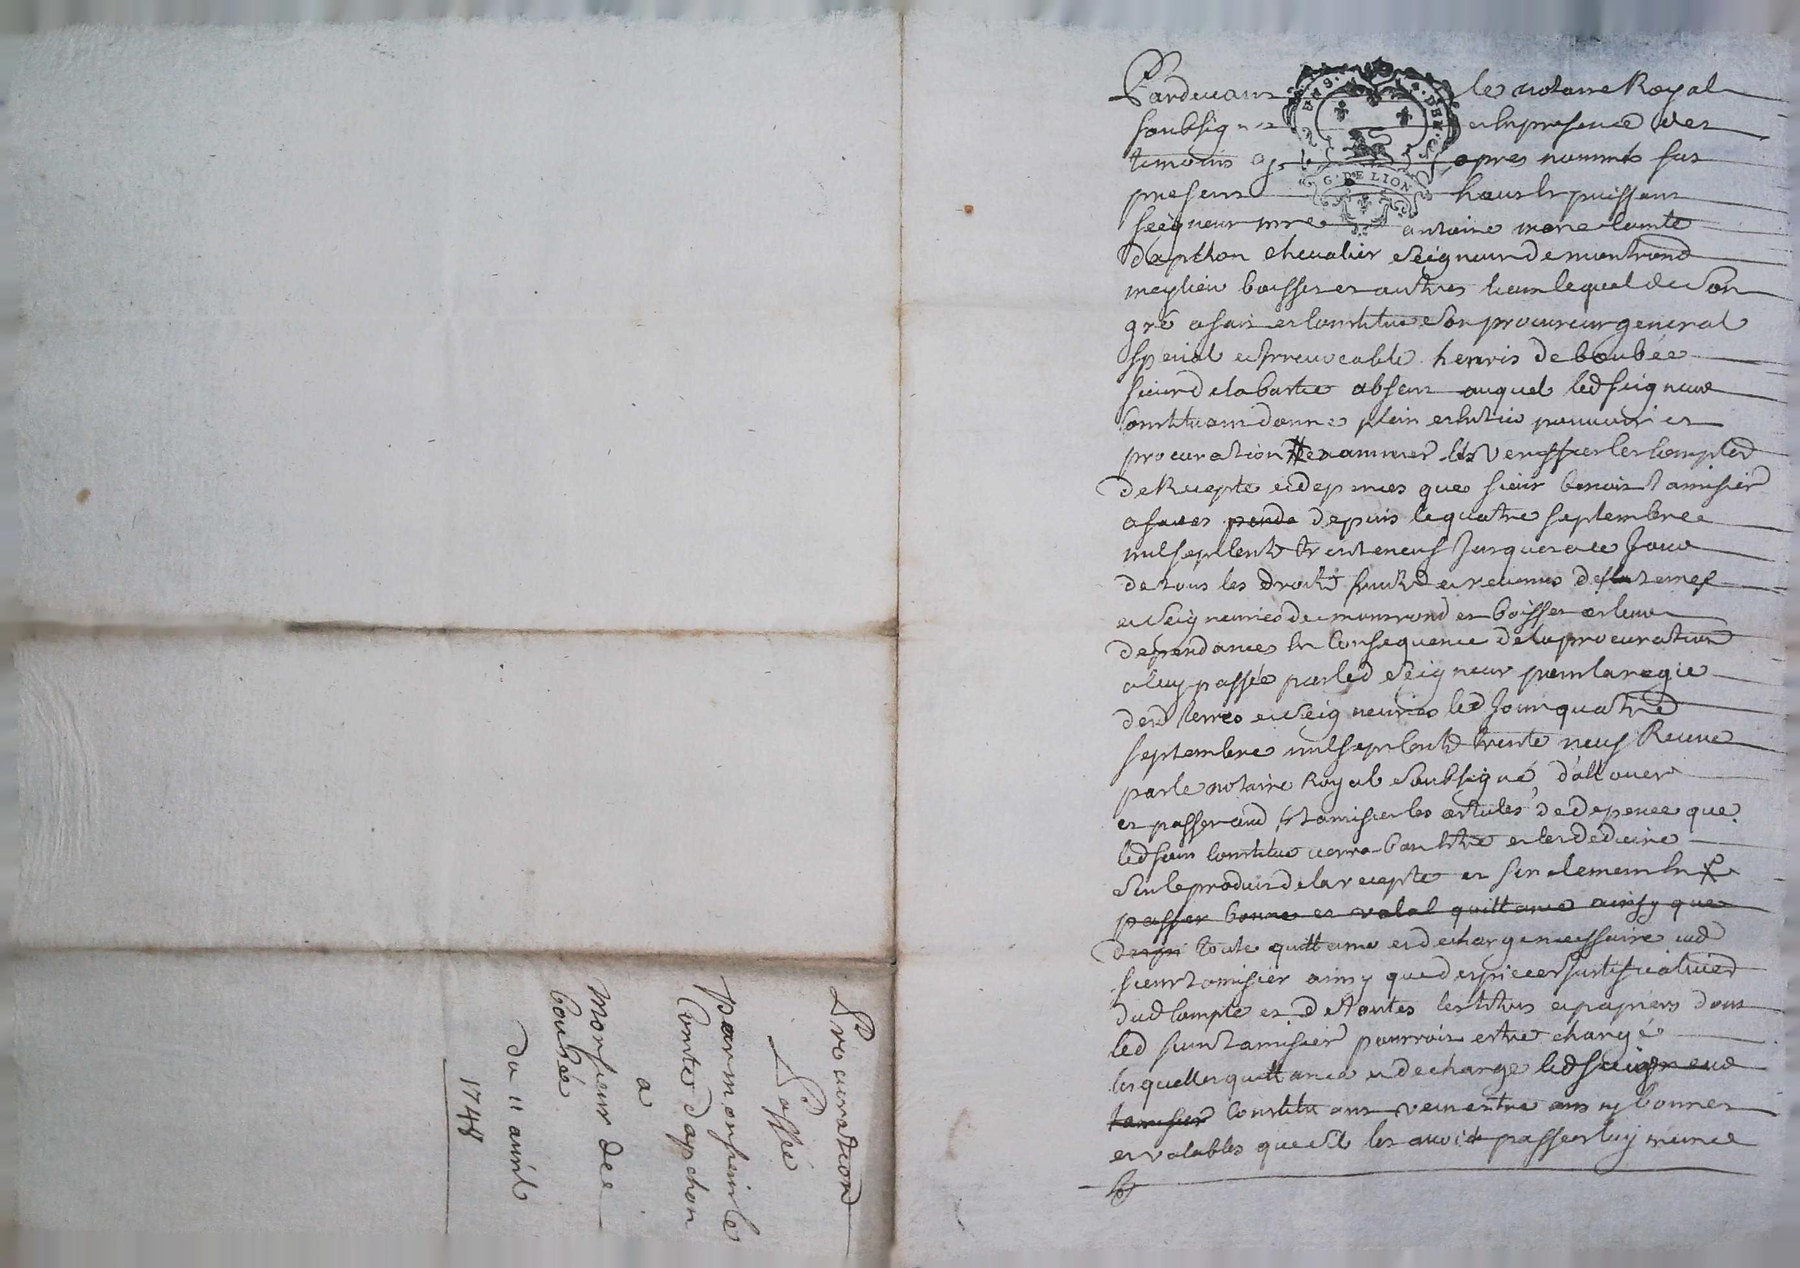 Pardevant le notaire Royal
soubsigné et en presence des
temoins cy apres nommés fut
present haut et puissant
seigneur mre antoine marie Comte
dapchon chevalier seigneur de montrond
meylieu boisset et autres lieux lequel de son
gré a fait et Constitue son procureur general
special et irrevocable henris de boubée
sieur de labatie absent auquel led seigneur
Constituant donne plein et entier pouvoir et
procuration d'examiner et veriffier les comptes
de Recepte et depences que sieur benoist tamisier
a faites penda depuis le quatre septembre
mil sept cents trente neuf jusques a ce jour
de tous les droits fruits et revenus des terres
et seigneuries de montrond et boisset et leurs
dependances en Consequence de la procuration
a luy passée par led seigneur pour la regie
desd terres et seigneuries led jour quatre
septembre mil sept Cents trente neuf Receue
par le notaire Royal soubsigné, d'allouer
et passer aud sr tamisier les articles de depence que
led sieur Constitué verra bon estre et les deduire
sur le produit de la recepte et finalement
passer bonne et valable quittance ainsy que
toute quittance et decharge necessaire aud
sieur tamisier ainsy que des pieces justificatives
dud Compte et de toutes les titres et papiers dont
led sieur tamisier pourroit estre chargé
lesquelles quittance et decharge led seigneur
tamisier Constituant veut estre aussy bonnes
et valables que s'il les avoit passées luy meme
Procuration
Passée
par monsieur le
Comte d'apchon
a
Monsieur de
boubée
Du 11 avril
1748
G. DE LION